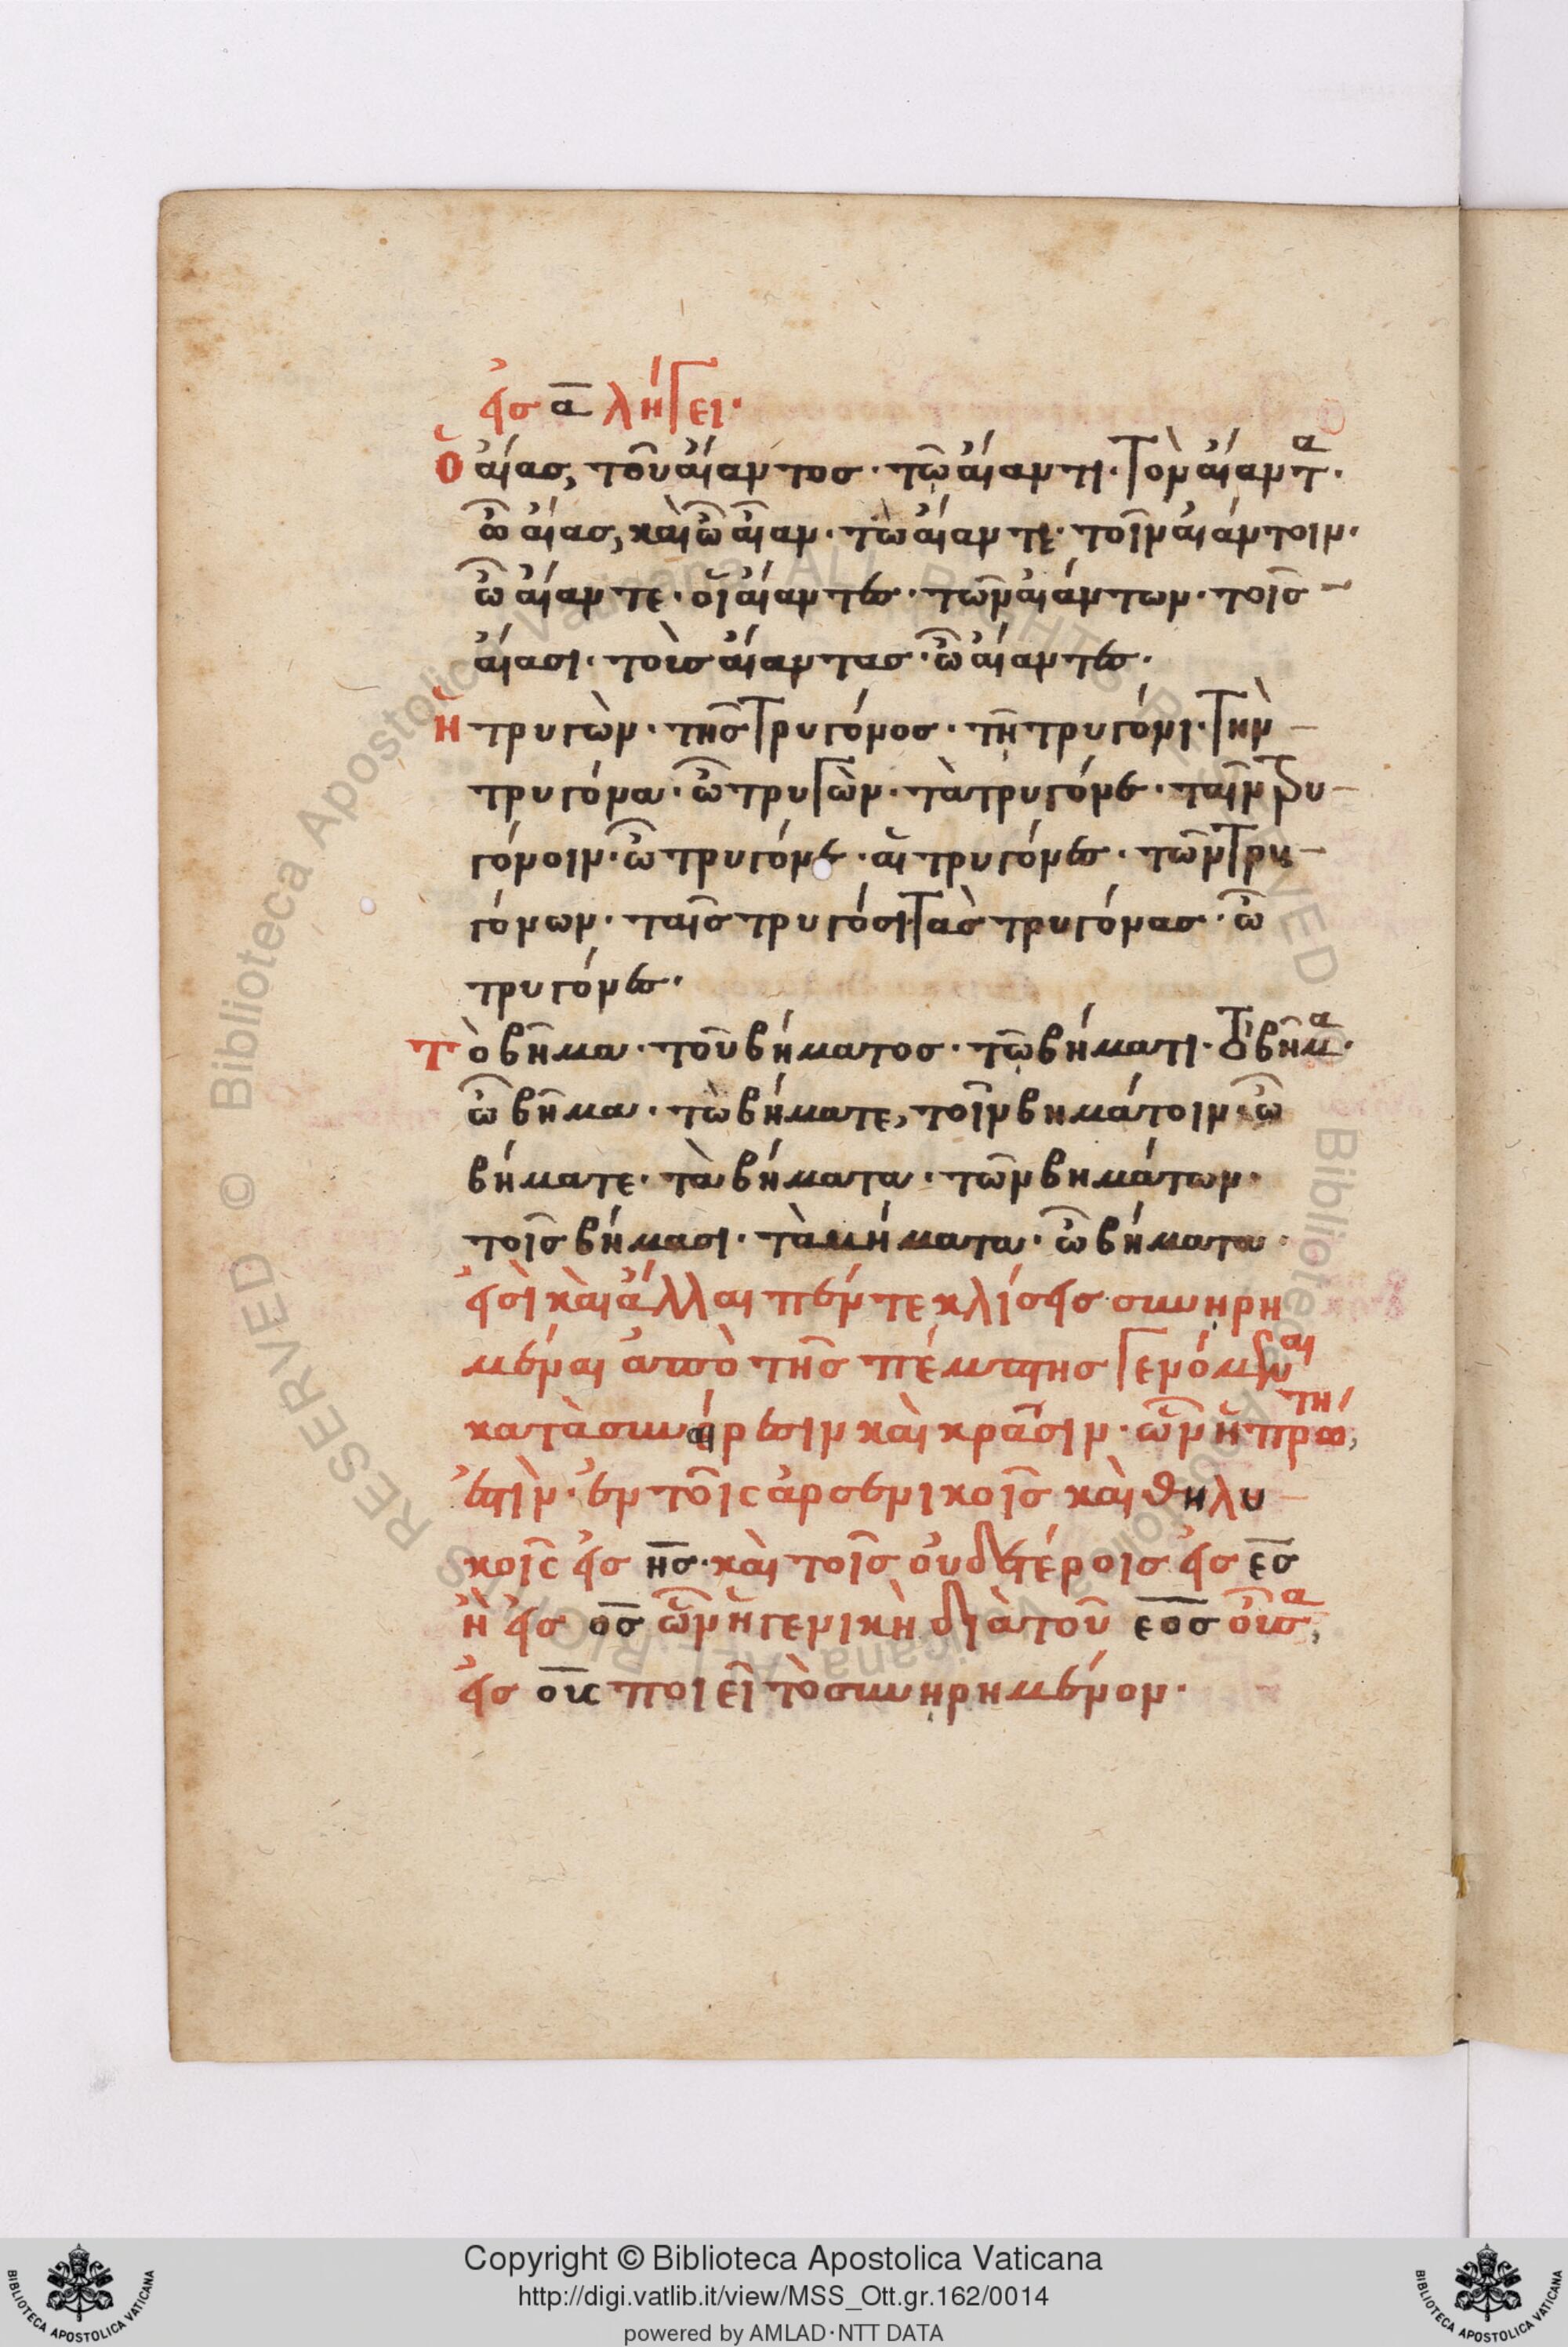 εἰς α λήγει·
Ὁ αἴας, τοῦ αἴαντος · τῷ αἴαντι · τὸν αἴαντα ·
ὦ αἴας, καὶ ὦ αἶαν · τὼ αἴαντε · τοῖν αἰάντοιν ·
ὦ αἴαντε · οἱ αἴαντες · τῶν αἰάντων · τοῖς
αἴασι · τοὺς αἴαντας · ὦ αἴαντες ·
Ἡ τρυγὼν · τῆς τρυγόνος · τῇ τρυγόνι · τὴν
τρυγόνα · ὦ τρυγὼν · τὰ τρυγόνε · ταῖν τρυ-
γόνοιν · ὦ τρυγόνε · αἱ τρυγόνες · τῶν τρυ-
γόνων · ταῖς τρυγόσι · τὰς τρυγόνας · ὦ
τρυγόνες ·
Τὸ βῆμα · τοῦ βήματος · τῷ βήματι · τὸ βῆμα ·
ὦ βῆμα · τὼ βήματε, τοῖν βημάτοιν · ὦ
βήματε · τὰ βήματα · τῶν βημάτων ·
τοῖς βήμασι · τὰ μήματα · ὦ βήματα ·
εἰσὶ καὶ ἄλλαι πέντε κλίσεις συνῃρη
μέναι ἀπὸ τῆς πέμπτης γενόμεναι
κατὰ συναίρεσιν καὶ κρᾶσιν · ὧν ἡ πρώτη,
ἐστὶν · ἐν τοῖς ἀρσενικοῖς καὶ θηλυ
κοῖς εἰς ης · καὶ τοῖς οὐδετέροις εἰς ες
ἢ εἰς ος ὧν ἡ γενικὴ διὰ τοῦ εος οὖσα,
εἰς ους ποιεῖ τὸ συνῃρημένον ·
Copyright © Biblioteca Apostolica Vaticana
http://digi.vatlib.it/view/MSS_Ott.gr.162/0014
powered by AMLAD·NTT DATA